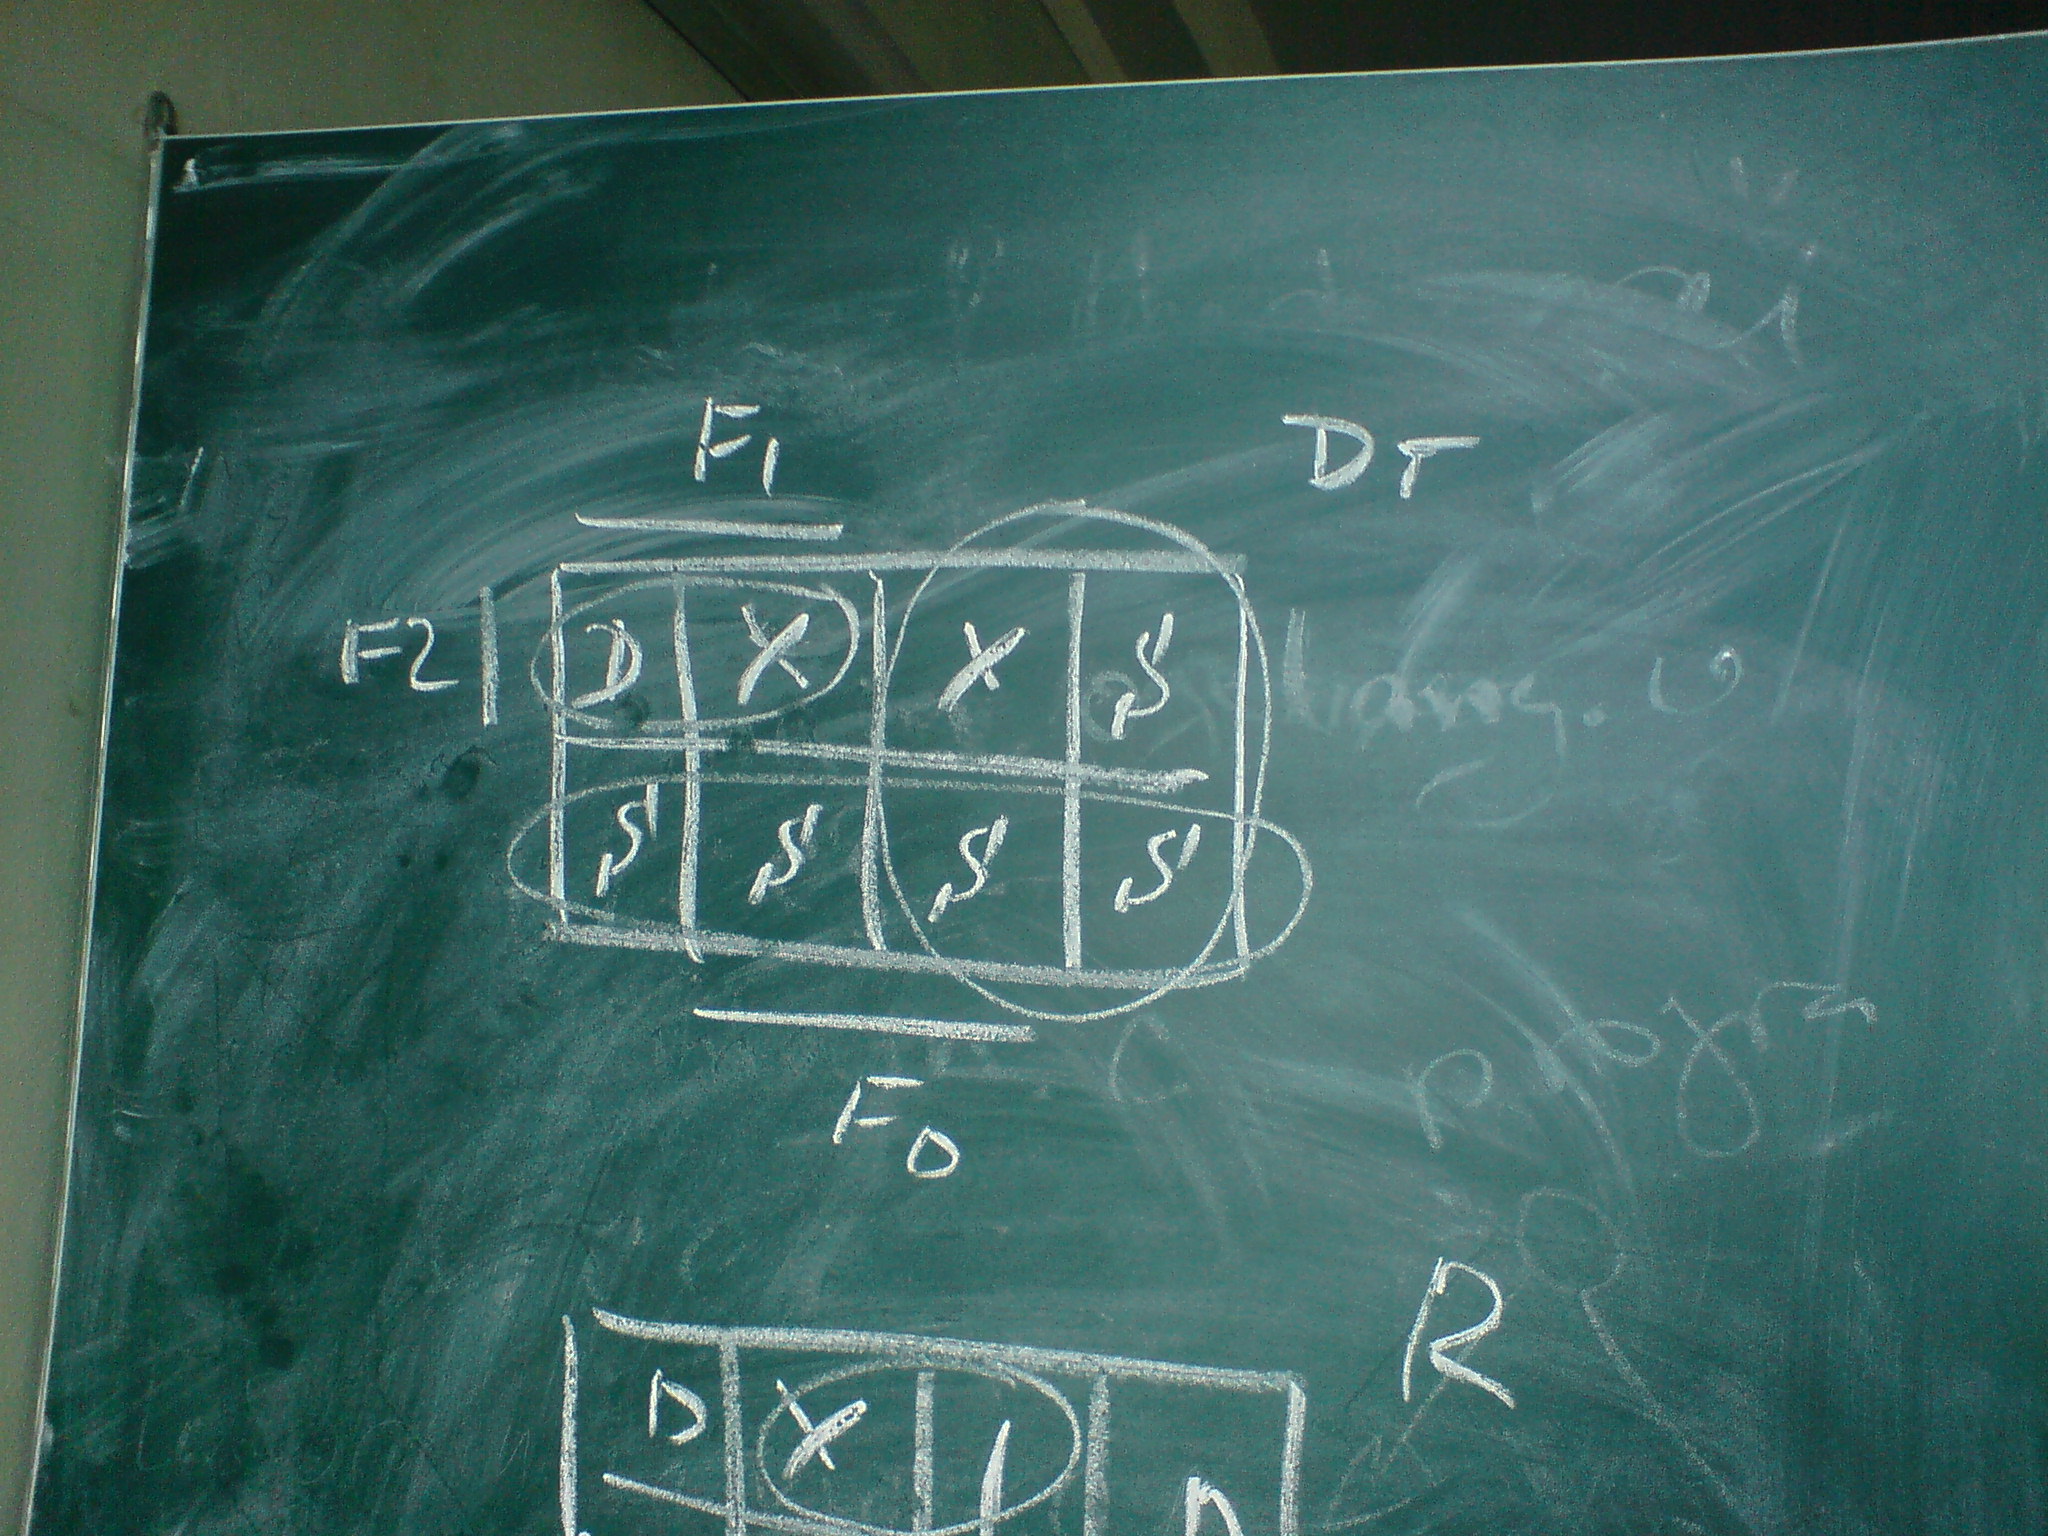 F1 DT
F2 D X X S
S S S S
F0
R
D X 1